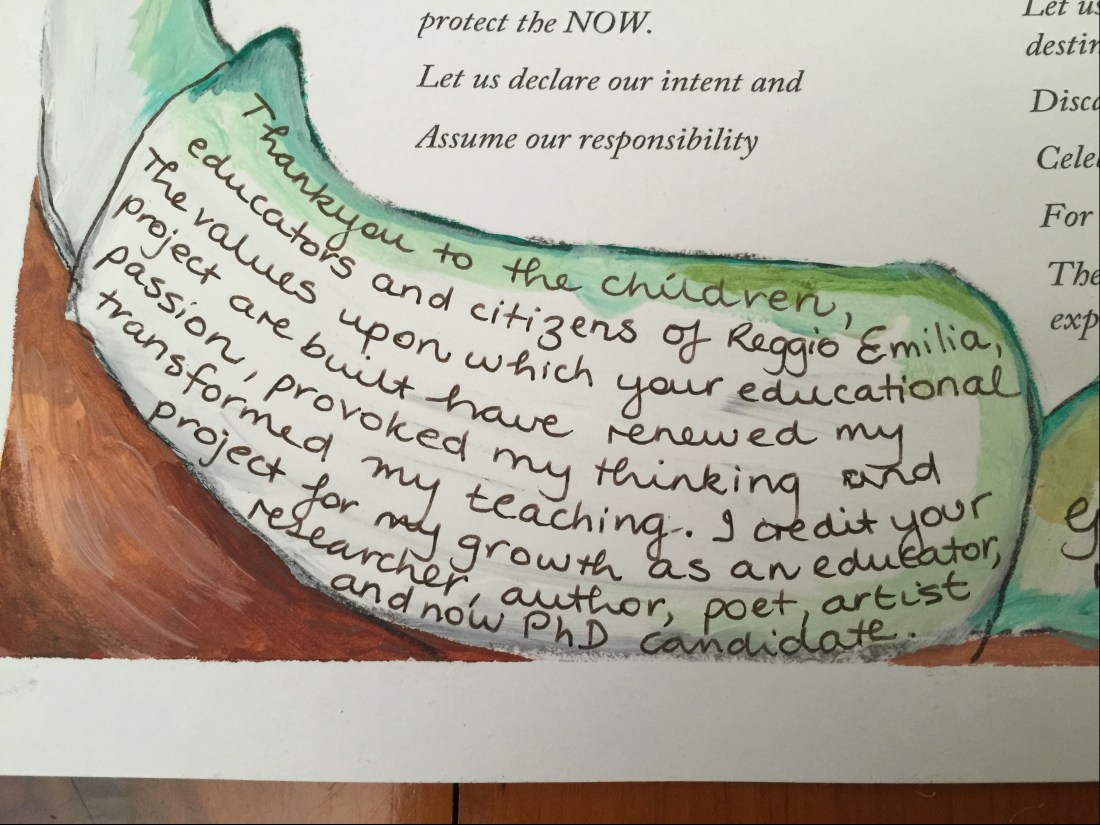 protect the NOW.
Let us declare our intent and
Assume our responsibility
Let us
For
The
Thankyou to the children,
educators and citizens of Reggio Emilia,
The values upon which your educational
project are built have renewed my
passion, provoked my thinking and
transformed my teaching. I credit your
project for my growth as an educator,
researcher, author, poet, artist
and now PhD candidate.